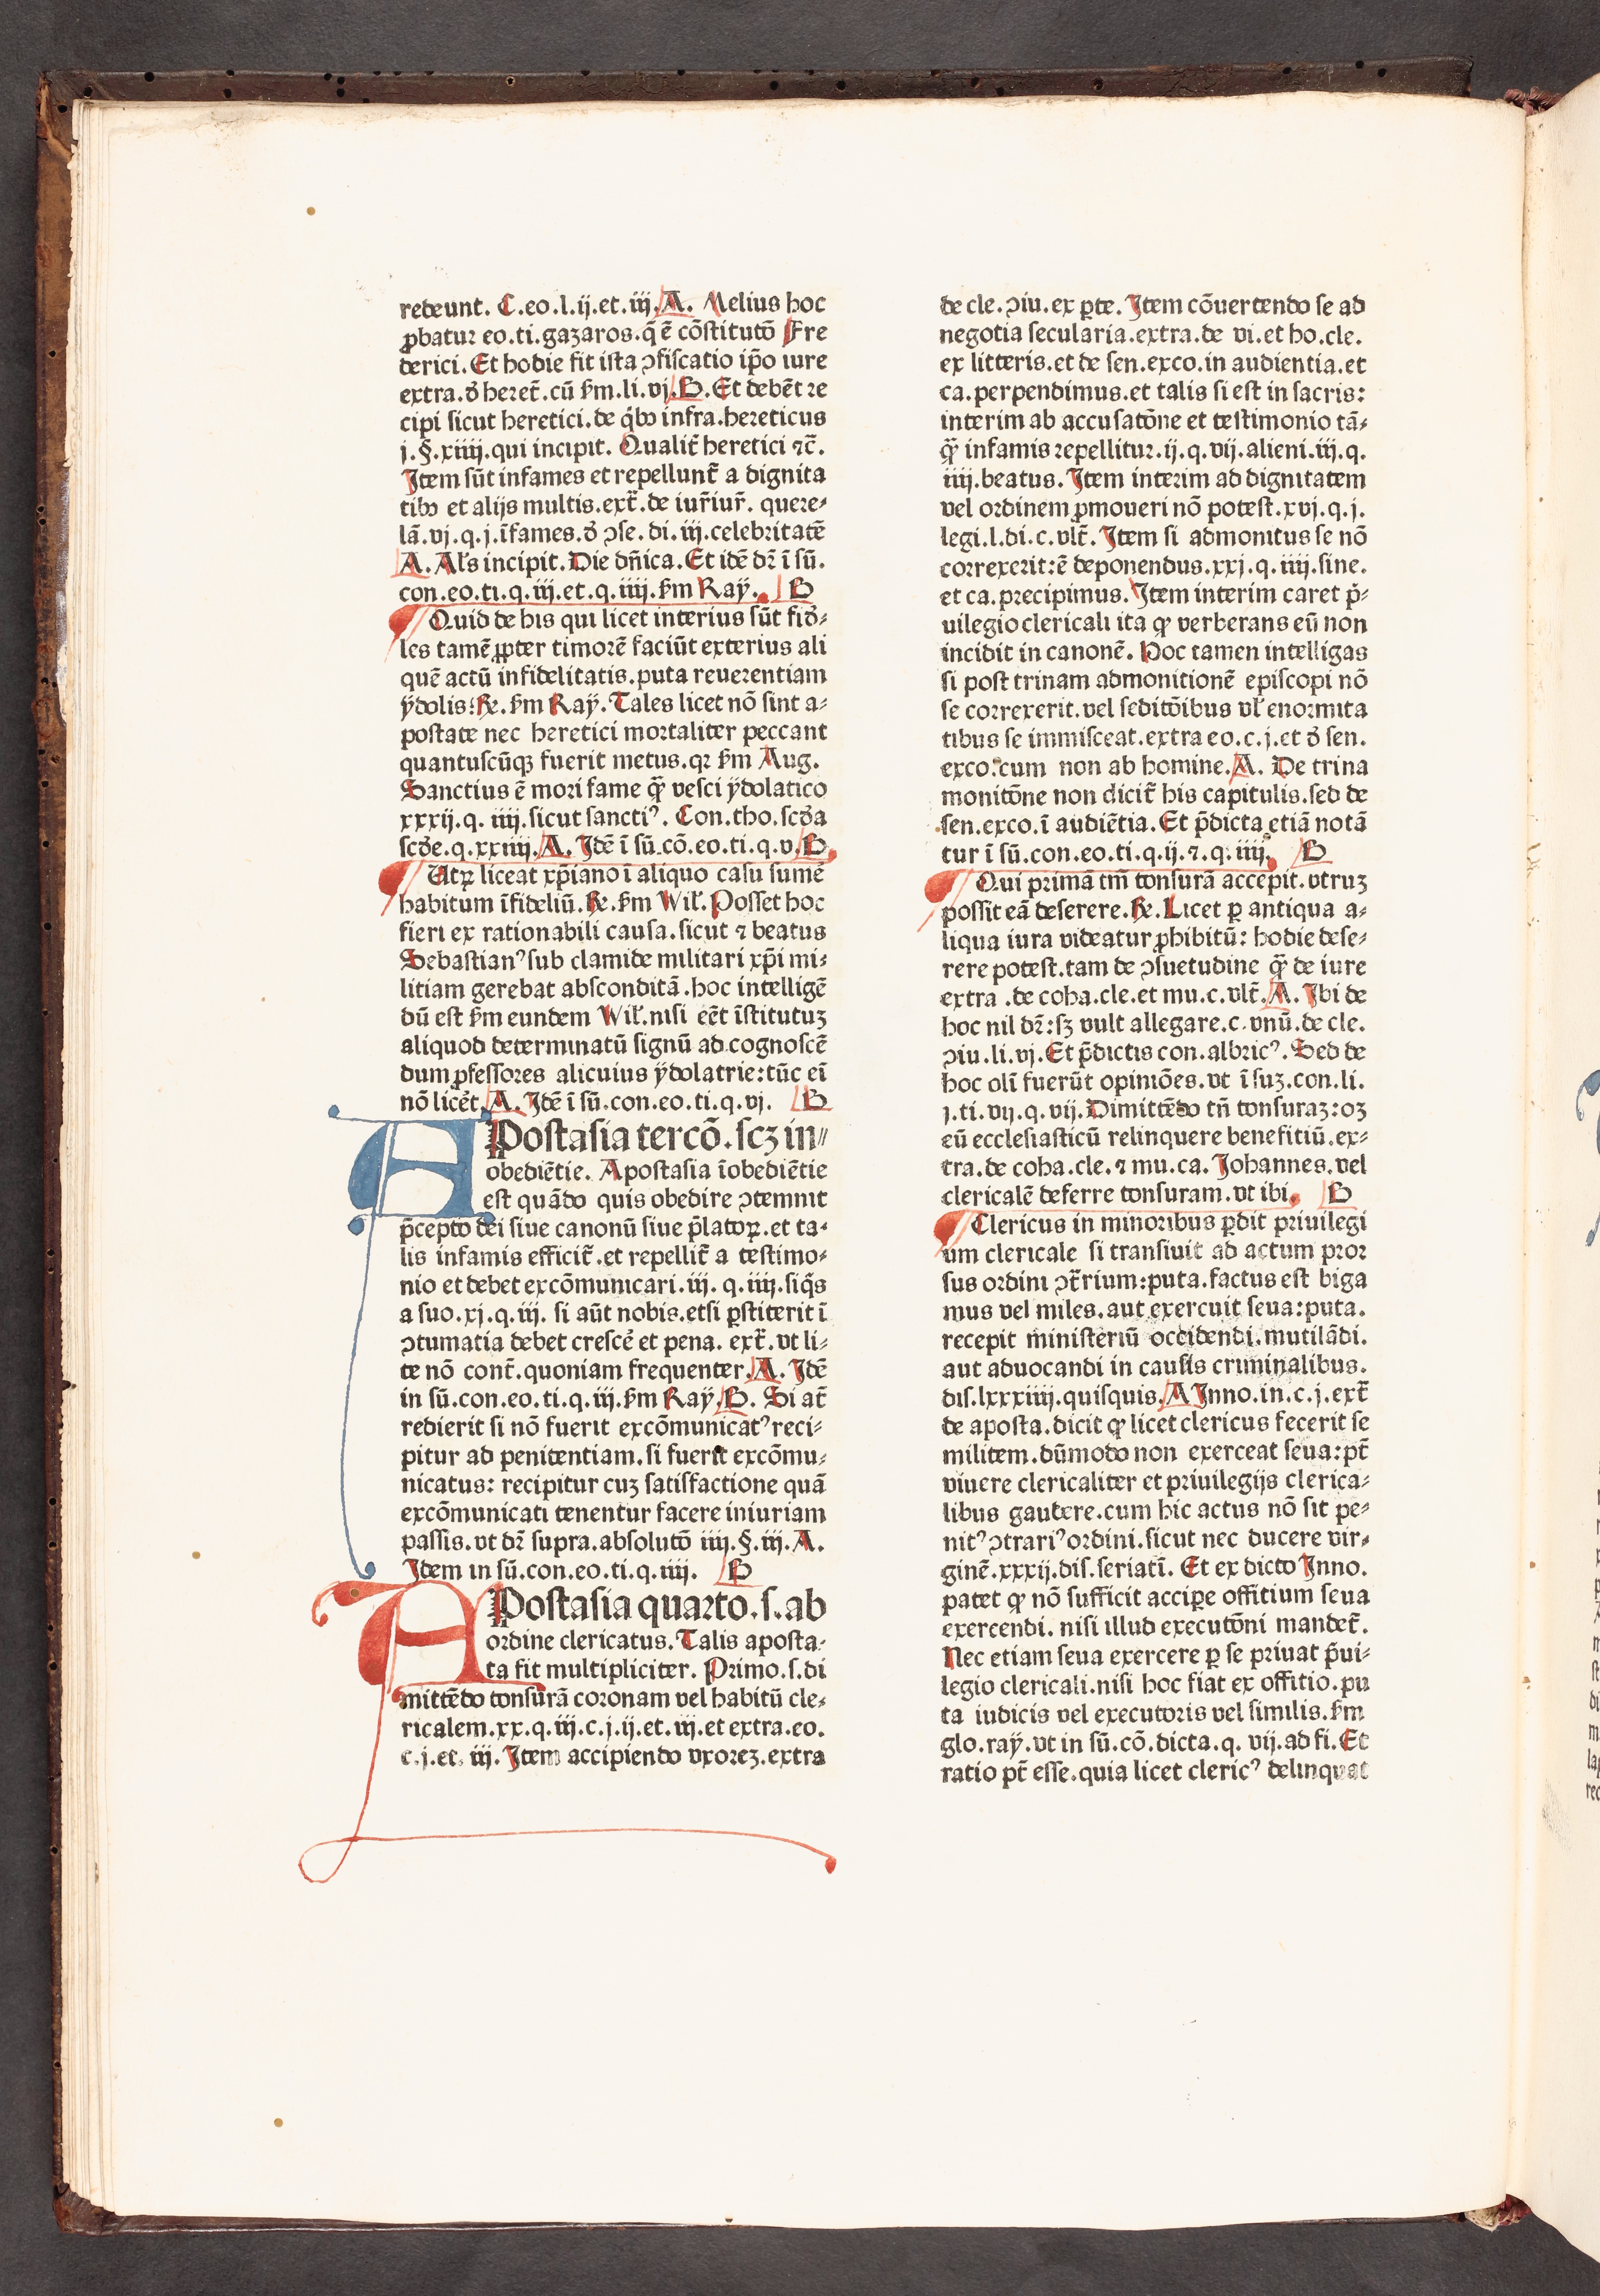 redeunt. C.eo.l.ij.et.iij.A. Melius hoc
ꝓbatur eo.ti.gazaros.q̄ ē cōstitutō Fre
derici. Et hodie fit ista ꝯfiscatio ip̄o iure
extra.ð heret̄.cū ẜm.li.vj.B.Et debēt re
cipi sicut heretici.de q̇bꝰ infra.hereticus
j.§.xiiij.qui incipit. Qualit̄ heretici ⁊c̄.
Item sūt infames et repellunt̄ a dignita
tibꝰ et alijs multis.ext̄.de iur̄iur̄. quere⸗
lā.vj.q.j.īfames.ð ꝯse.di.iij.celebritatē
A. Al's incipit. Die dn̄ica. Et idē dr̄ ī sū.
con.eo.ti.q.iij.et.q.iiij.ẜm Raÿ. B
Quid de his qui licet interius sūt fið⸗
les tamē ꝓpter timorē faciūt exterius ali
quē actū infidelitatis.puta reuerentiam
ÿdolis:℞.ẜm Raÿ.Tales licet nō sint a⸗
postate nec heretici mortaliter peccant
quantuscūqꝫ fuerit metus.qꝛ ẜm Aug.
Sanctius ē mori fame qꝙ̄ vesci ÿdolatico
xxxij.q. iiij.sicut sanctiꝰ. Con.tho.scða
scðe.q.xxiiij.A. Idē ī sū.cō.eo.ti.q.v.B
Utꝝ liceat xp̄iano ī aliquo casu sume᷒
habitum īfideliū.℞.ẜm Wil̄.Posset hoc
fieri ex rationabili causa.sicut ⁊ beatus
Sebastianꝰ sub clamide militari xp̄i mi⸗
litiam gerebat absconditā.hoc intelligē
dū est ẜm eundem Wil̄.nisi eēt īstitutuꝫ
aliquod determinatū signū ad.cognoscē
dum ꝓfessores alicuius ÿdolatrie:tūc eī
nō licēt.A. Idē ī sū.con.eo.ti.q.vj. B
APostasia tercō.scꝫ in⸗
obediētie. Apostasia īobediētie
est quādo quis obedire ꝯtemnit
p̄cepto dei siue canonū siue p̄latoꝝ.et ta⸗
lis infamis efficit̄.et repellit̄ a testimo⸗
nio et debet excōmunicari.iij. q.iiij.siq̇s
a suo.xj.q.iij. si aūt nobis.etsi ꝑstiterit ī
ꝯtumatia debet crescē et pena. ext̄. vt li⸗
te nō cont̄.quoniam frequenter.A. Idē
in sū.con.eo.ti.q.iij.ẜm Raÿ.B. Si at̄
redierit si nō fuerit excōmunicatꝰ reci⸗
pitur ad penitentiam.si fuerit excōmu⸗
nicatus: recipitur cuꝫ satisfactione quā
excōmunicati tenentur facere iniuriam
passis.vt dr̄ supra.absolutō iiij.§.iij.A.
Idem in sū.con.eo.ti.q.iiij. B
APostasia quarto.s.ab
ordine clericatus.Talis aposta⸗
ta fit multipliciter. Primo.s.di
mittēdo tonsurā coronam vel habitū cle⸗
ricalem.xx.q.iij.c.j.ij.et.iij.et extra.eo.
c.j.et. iij. Item accipiendo vxoreꝫ.extra
de cle.ꝯiu.ex ꝑte. Item cōuertendo se ad
negotia secularia.extra.de vi.et ho.cle.
ex litteris.et de sen.exco.in audientia.et
ca.perpendimus.et talis si est in sacris:
interim ab accusatōne et testimonio tā⸗
qꝙ̄ infamis repellitur.ij.q.vij.alieni.iij.q.
iiij.beatus. Item interim ad dignitatem
vel ordinem ꝓmoueri nō potest.xvj.q.j.
legi.l.di.c.vlt̄. Item si admonitus se nō
correxerit:ē deponendus.xxj.q.iiij.sine.
et ca.precipimus.Item interim caret p̄⸗
uilegio clericali ita ꝙ verberans eū non
incidit in canonē. Hoc tamen intelligas
si post trinam admonitionē episcopi nō
se correxerit.vel seditōibus vl̄ enormita
tibus se immisceat.extra eo.c.j.et ð sen.
exco.cum non ab homine.A. De trina
monitōne non dicit̄ his capitulis.sed de
sen.exco.ī audiētia. Et p̄dicta etiā notā
tur ī sū.con.eo.ti.q.ij.⁊.q.iiij. B
Qui primā tm̄ tonsurā accepit.vtruꝫ
possit eā deserere.℞.Licet ꝑ antiqua a⸗
liqua iura videatur ꝓhibitū: hodie dese⸗
rere potest.tam de ꝯsuetudine qꝙ̄ de iure
extra .de coha.cle.et mu.c.vlt̄.A. Ibi de
hoc nil dr̄:sꝫ vult allegare.c.vnū.de cle.
ꝯiu.li.vj.Et p̄dictis con.albricꝰ. Sed de
hoc olī fuerūt opiniōes.vt ī suꝫ.con.li.
j.ti.vij.q.vij.Dimittēdo tn̄ tonsuraꝫ:oꝫ
eū ecclesiasticū relinquere benefitiū.ex⸗
tra.de coha.cle.⁊ mu.ca. Iohannes.vel
clericalē deferre tonsuram.vt ibi. B
Clericus in minoribus ꝑdit priuilegi
um clericale si transiuit ad actum pror
sus ordini ꝯt̄rium:puta.factus est biga
mus vel miles.aut exercuit seua:puta.
recepit ministeriū occidendi.mutilādi.
aut aduocandi in causis criminalibus.
dis.lxxxiiij.quisquis.A Inno.in.c.j.ext̄
de aposta.dicit ꝙ licet clericus fecerit se
militem.dūmodo non exerceat seua:pt̄
viuere clericaliter et priuilegijs clerica⸗
libus gaudere.cum hic actus nō sit pe⸗
nitꝰ ꝯtrariꝰ ordini.sicut nec ducere vir⸗
ginē.xxxij.dis.seriatī. Et ex dicto Inno.
patet ꝙ nō sufficit accipe offitium seua
exercendi. nisi illud executōni mandet̄.
Nec etiam seua exercere ꝑ se priuat p̄ui⸗
legio clericali.nisi hoc fiat ex offitio.pu
ta iudicis vel executoris vel similis.ẜm
glo.raÿ.vt in sū.cō.dicta.q. vij.ad fi.Et
ratio pt̄ esse.quia licet clericꝰ delinquat